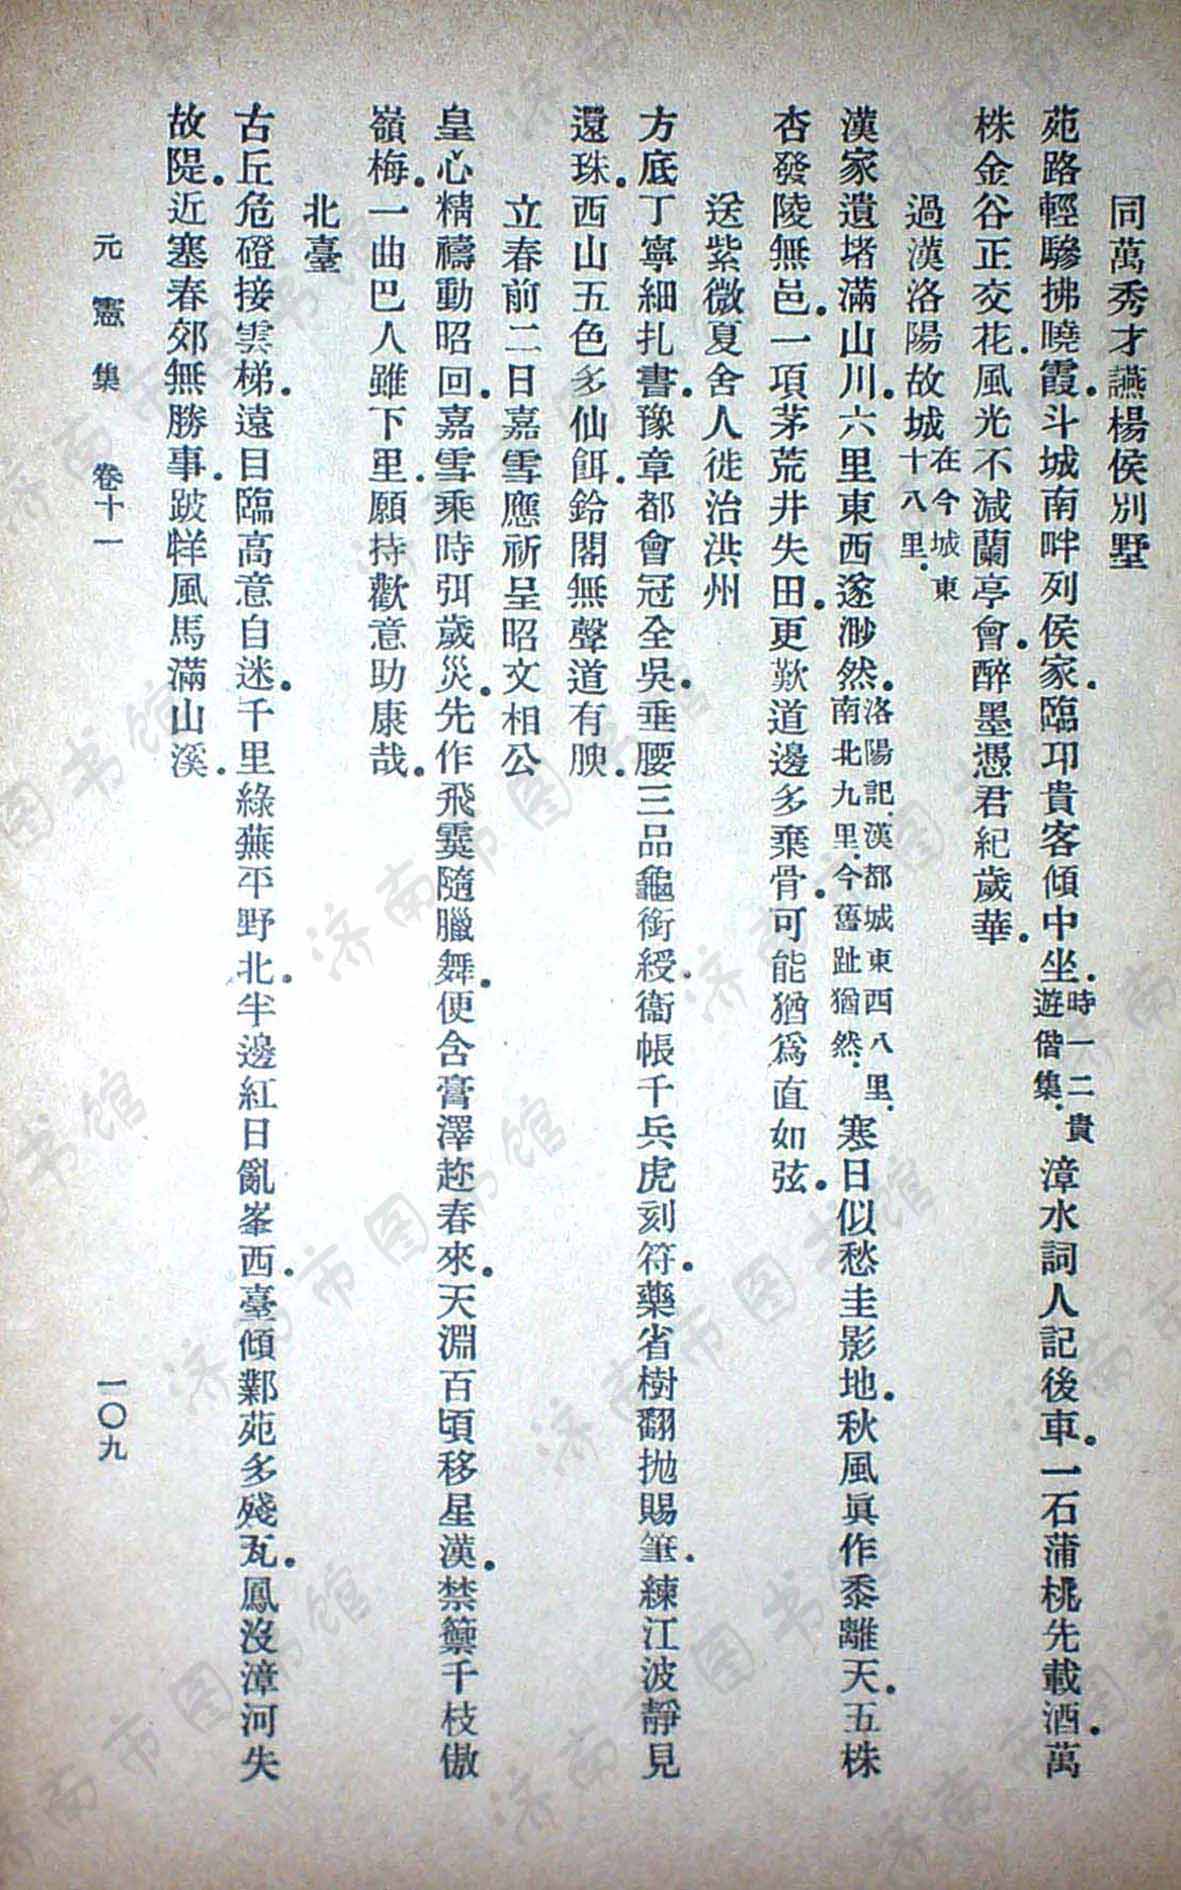 同萬秀才讌楊侯別墅
苑路輕驂拂曉霞.斗城南畔列侯家.臨卭貴客傾中坐.時一二貴遊偕集.漳水詞人記後車.一石蒲桃先載酒.萬
株金谷正交花.風光不減蘭亭會.醉墨憑君紀歲華.
過漢洛陽故城在今城東十八里.
漢家遺堵滿山川.六里東西遂渺然.洛陽記.漢都城東西八里.南北九里.今舊趾猶然.寒日似愁圭影地.秋風眞作黍離天.五株
杏發陵無邑.一項茅荒井失田.更歎道邊多棄骨.可能猶爲直如弦.
送紫微夏舍人徙治洪州
方底丁寧細扎書.豫章都會冠全吳.垂腰三品龜銜綬.衞帳千兵虎刻符.藥省樹翻抛賜筆.練江波靜見
還珠.西山五色多仙餌.鈴閣無聲道有腴.
立春前二日嘉雪應祈呈昭文相公
皇心精禱動昭回.嘉雪乘時弭歲災.先作飛霙隨臘舞.便含膏澤趂春來.天淵百頃移星漢.禁籞千枝傲
嶺梅.一曲巴人雖下里.願持歡意助康哉.
北臺
古丘危磴接雲梯.遠目臨高意自迷.千里綠蕪平野北.半邊紅日亂峯西.臺傾鄴苑多殘瓦.鳳沒漳河失
故隄.近塞春郊無勝事.跛牂風馬滿山溪.
元憲集 卷十一 一〇九